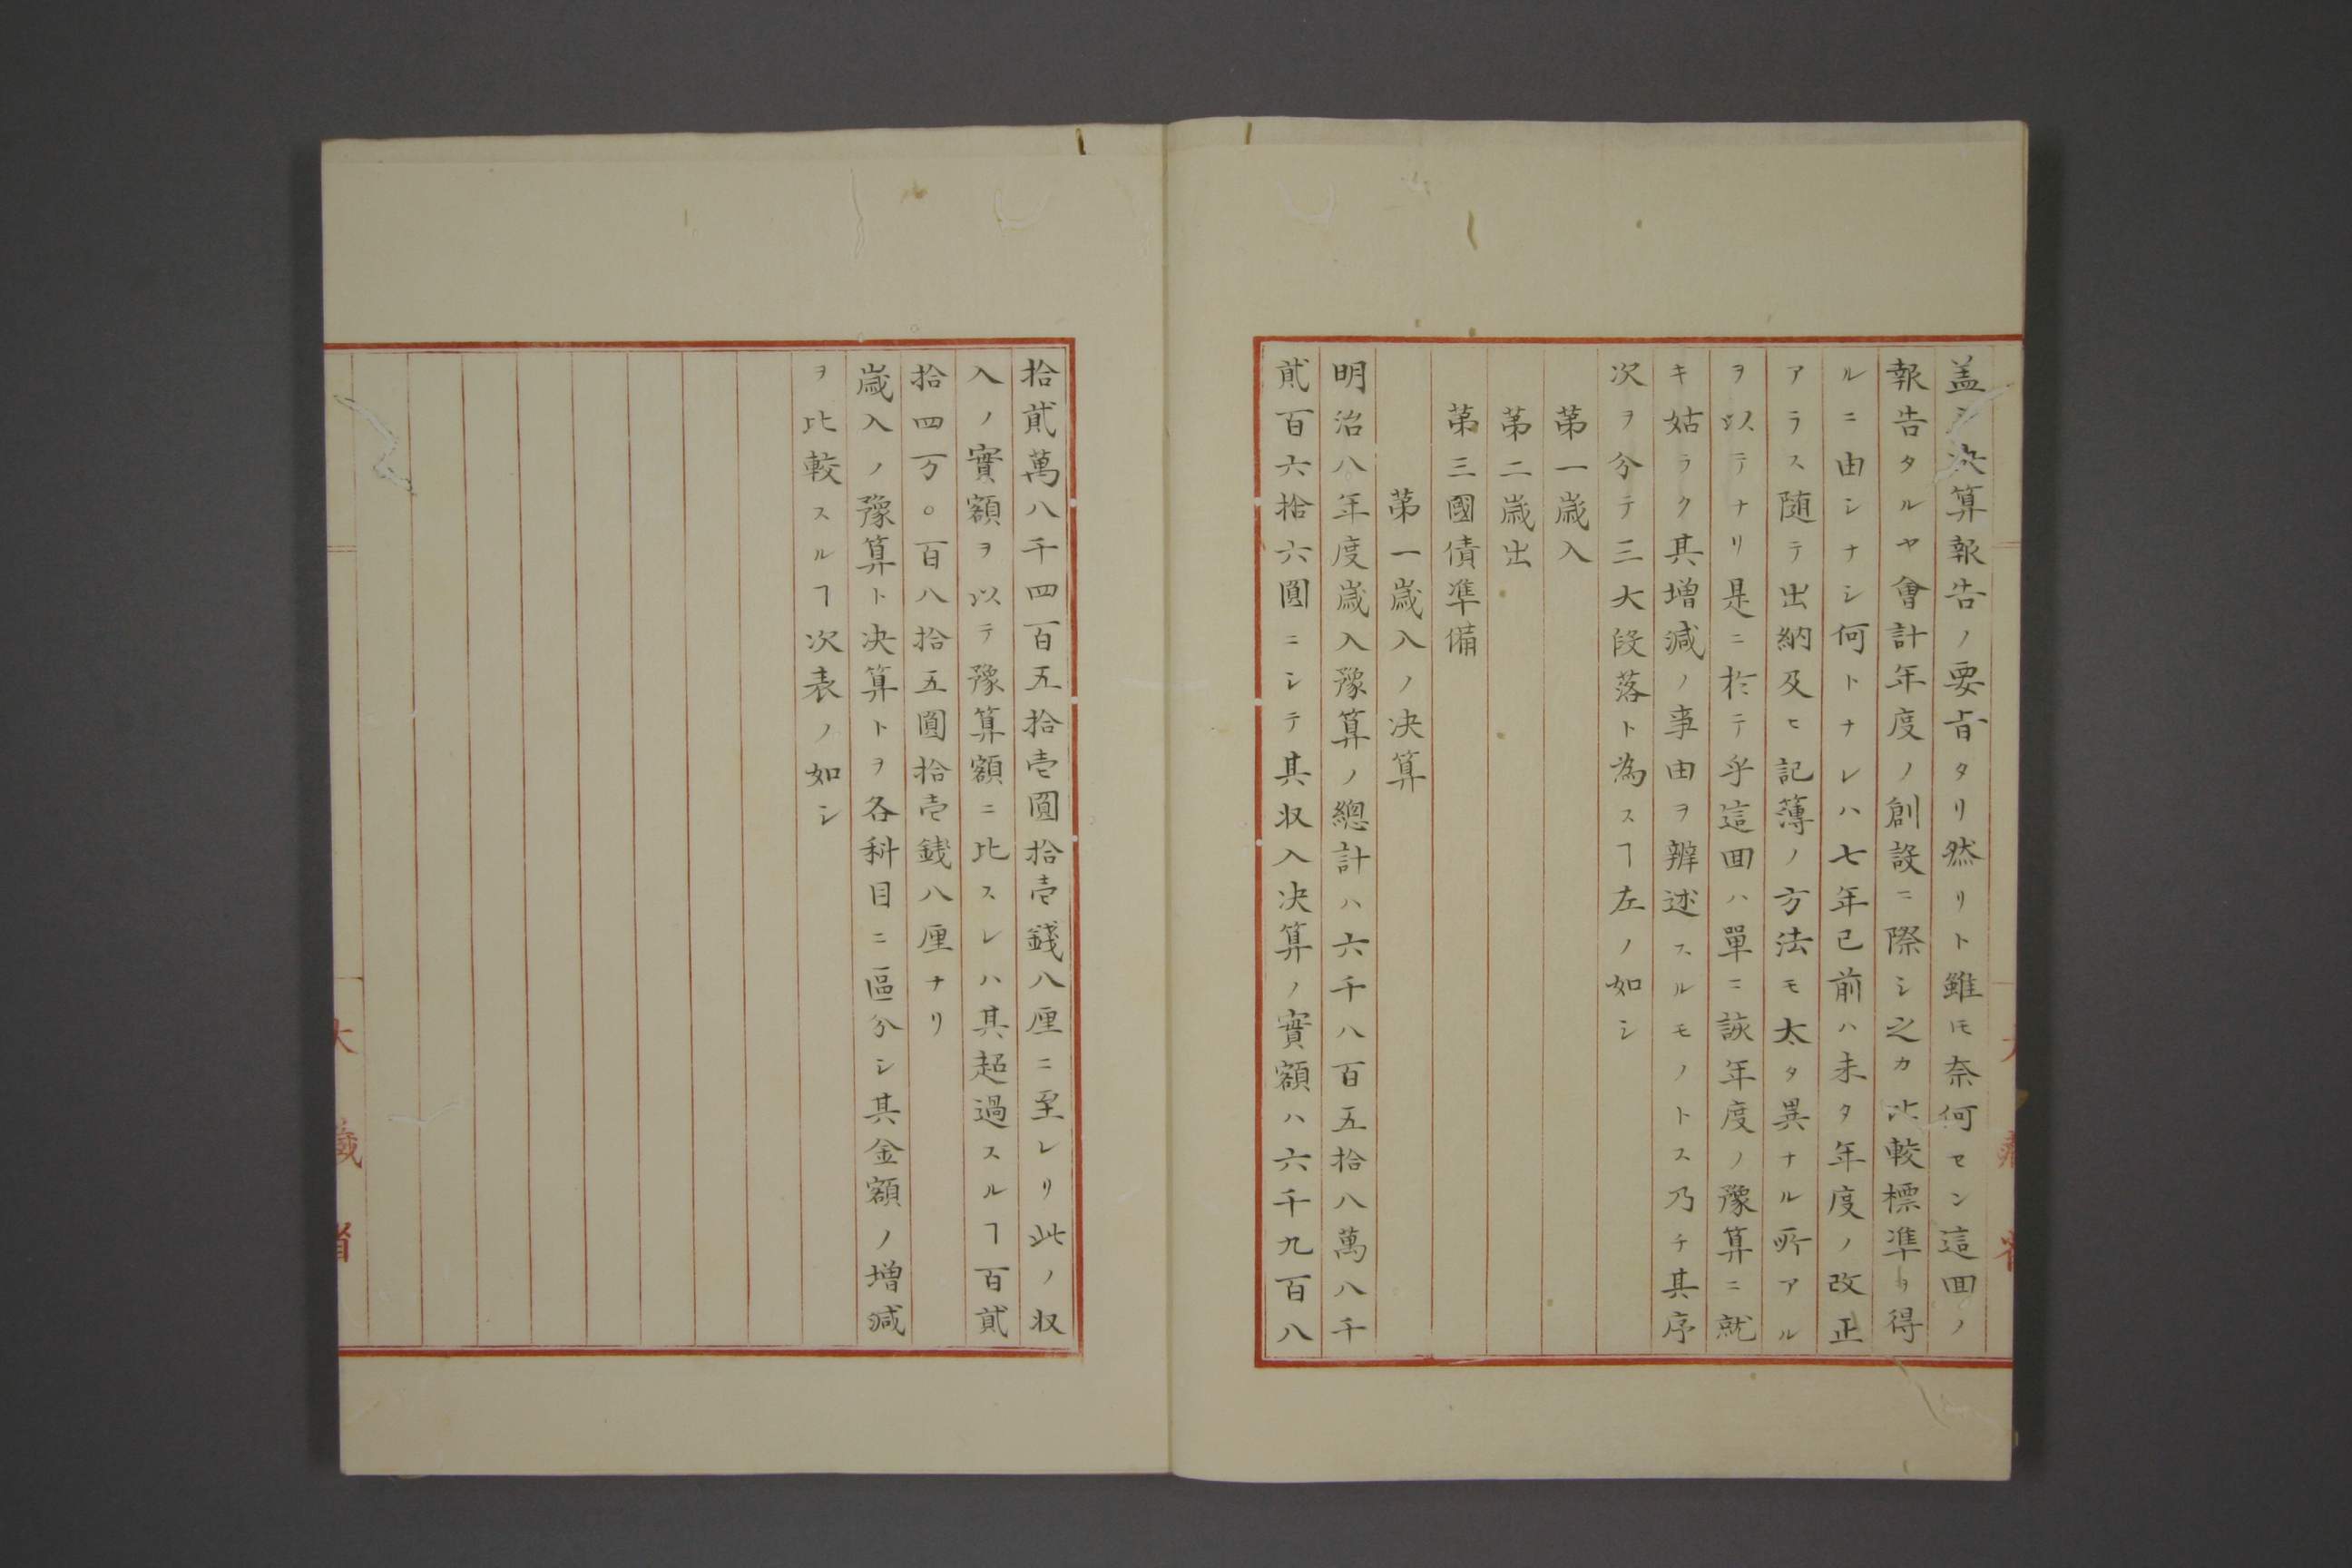 盖シ决算報告ノ要旨タリ然リト雖𪜈奈何セン這回ノ
報告タルヤ會計年度ノ創設ニ際シ之カ比較標準ヲ得
ルニ由シナシ何トナレハ七年已前ハ未タ年度ノ改正
アラス随テ出納及ヒ記簿ノ方法モ太タ異ナル所アル
ヲ以テナリ是ニ於テ乎這回ハ單ニ該年度ノ豫算ニ就
キ姑ラク其増減ノ事由ヲ辨述スルモノトス乃チ其序
次ヲ分テ三大段落ト為スヿ左ノ如シ
第一歳入
第二歳出
第三國債準備
第一歳入ノ决算
明治八年度歳入豫算ノ總計ハ六千八百五拾八萬八千
貮百六拾六圓ニシテ其収入决算ノ實額ハ六千九百八
拾貮萬八千四百五拾壱圓拾壱錢八厘ニ至レリ此ノ収
入ノ實額ヲ以テ豫算額ニ比スレハ其超過スルヿ百貮
拾四万〇百八拾五圓拾壱銭八厘ナリ
歳入ノ豫算ト决算トヲ各科目ニ區分シ其金額ノ増減
ヲ比較スルヿ次表ノ如シ
大藏省